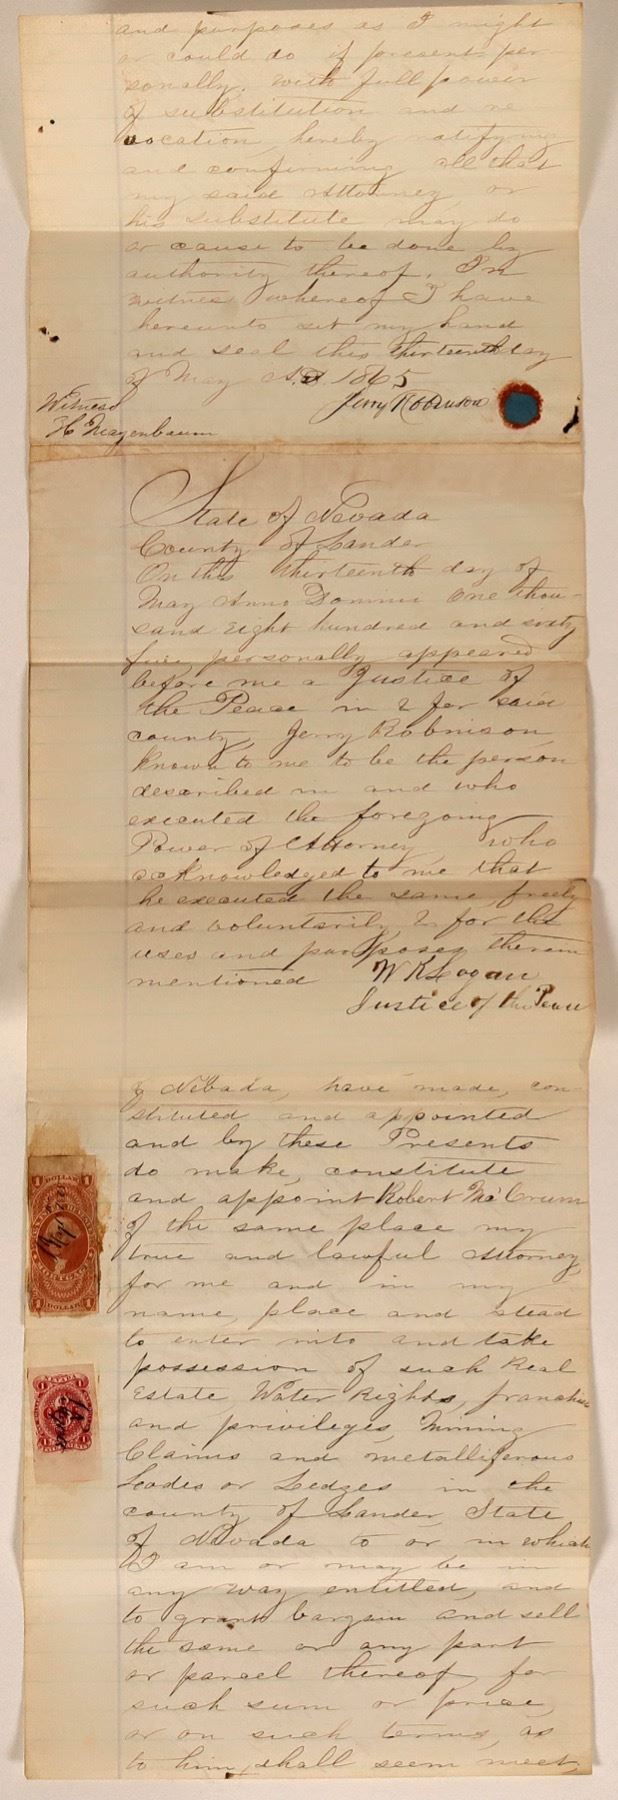 and purposes as I might
or could do if present per-
sonally, with full power
of substitution and re
vocation, hereby ratifying
and confirming all that
my said Attorney or
his substitute may do
or cause to be done by
authority thereof. In
witness whereof I have
hereunto set my hand
and seal this thirteenth day
of May A.D. 1865
Jerry Robinson
Witness
H Mayenbaum
State of Nevada
County of Lander
On this thirteenth day of
May Anno Domini One thou-
sand Eight hundred and sixty
five, personally appeared
before me a Justice of
the Peace in & for said
county, Jerry Robinson
known to me to be the person
described in and who
executed the foregoing
Power of Attorney, who
acknowledged to me that
he executed the same freely
and voluntarily & for the
uses and purposes therein
mentioned W K Logan
Justice of the Peace
of Nevada, have made, con-
stituted and appointed
and by these Presents
do make, constitute
and appoint Robert McCrum
of the same place my
true and lawful Attorney,
for me and in my
name, place and stead
to enter into and take
possession of such Real
Estate, Water Rights, franchises
and privileges, Mining
Claims and metalliferous
Leades or Ledges in the
county of Lander, State
of Nevada to or in which
I am or may be in
any way entitled, and
to grant bargain and sell
the same or any part
or parcel thereof for
such sum or price,
or on such terms, as
to him shall seem meet,
1 DOLLAR 1
1 DOLLAR 1